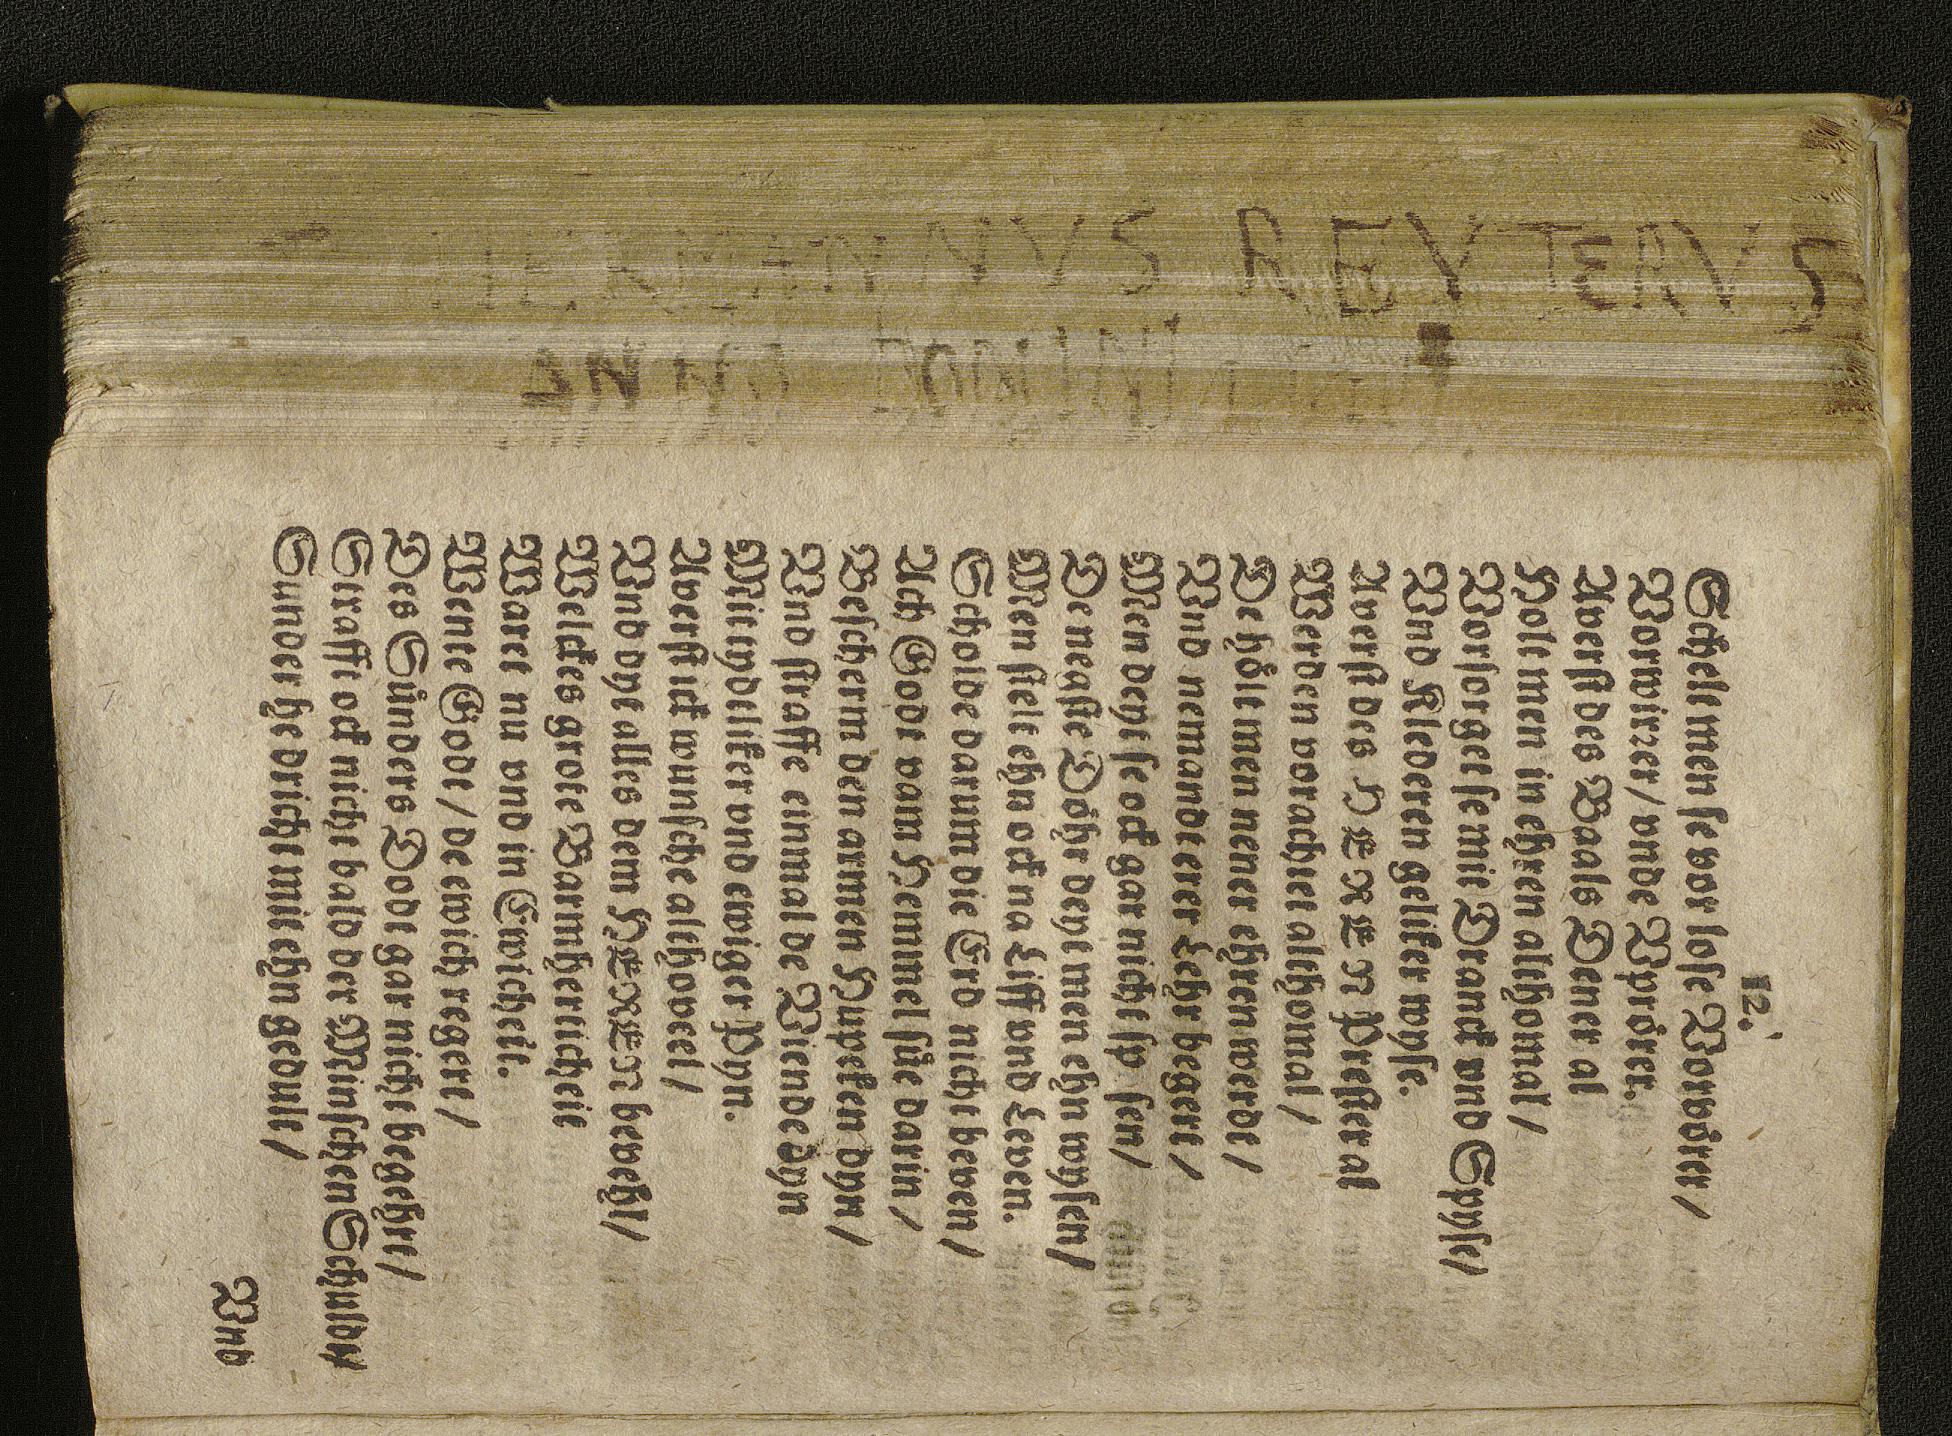 HERMANNVS REYTERVS
ANNO DOMINI
12.
Schelt men se vor lose Vorvörer/
Vorwirrer/ vnde Vpröret.
Averst des Baals Dener al
Holt men in ehren althomal/
Vorsorget se mit Dranck vnd Spyse/
Vnd Klederen geliker wyse.
Averst des HEREN Prester al
Werden vorachtet altho mal/
De hölt men nener ehren werde/
Vnd nemandt erer Lehr begert/
Men deyt se ock gar nicht sp sen/
De ne aste Döhr deyt men ehn wysen/
Men stelt ehn ock na Liff vnd Leven.
Scholde darum die Erd nicht beven/
Ach Godt vam Hemmel süe darin/
Bescherm den armen Hupeken dyn/
Vnd straffe einmal de Viende dyn
Mit tydeliker vnd ewiger Pyn.
Averst ick wunsche altho veel/
Vnd dyt alles dem HEREN bevehl/
Welckes grote Barmherticheit
Waret nu vnd in Ewicheit.
Wente Godt/ de ewich regert/
Des Sünders Dodt gar nicht begehrt/
Strafft ock nicht bald der Minschen Schuldt/
Sunder he dricht mit ehn gedult/
Vnd